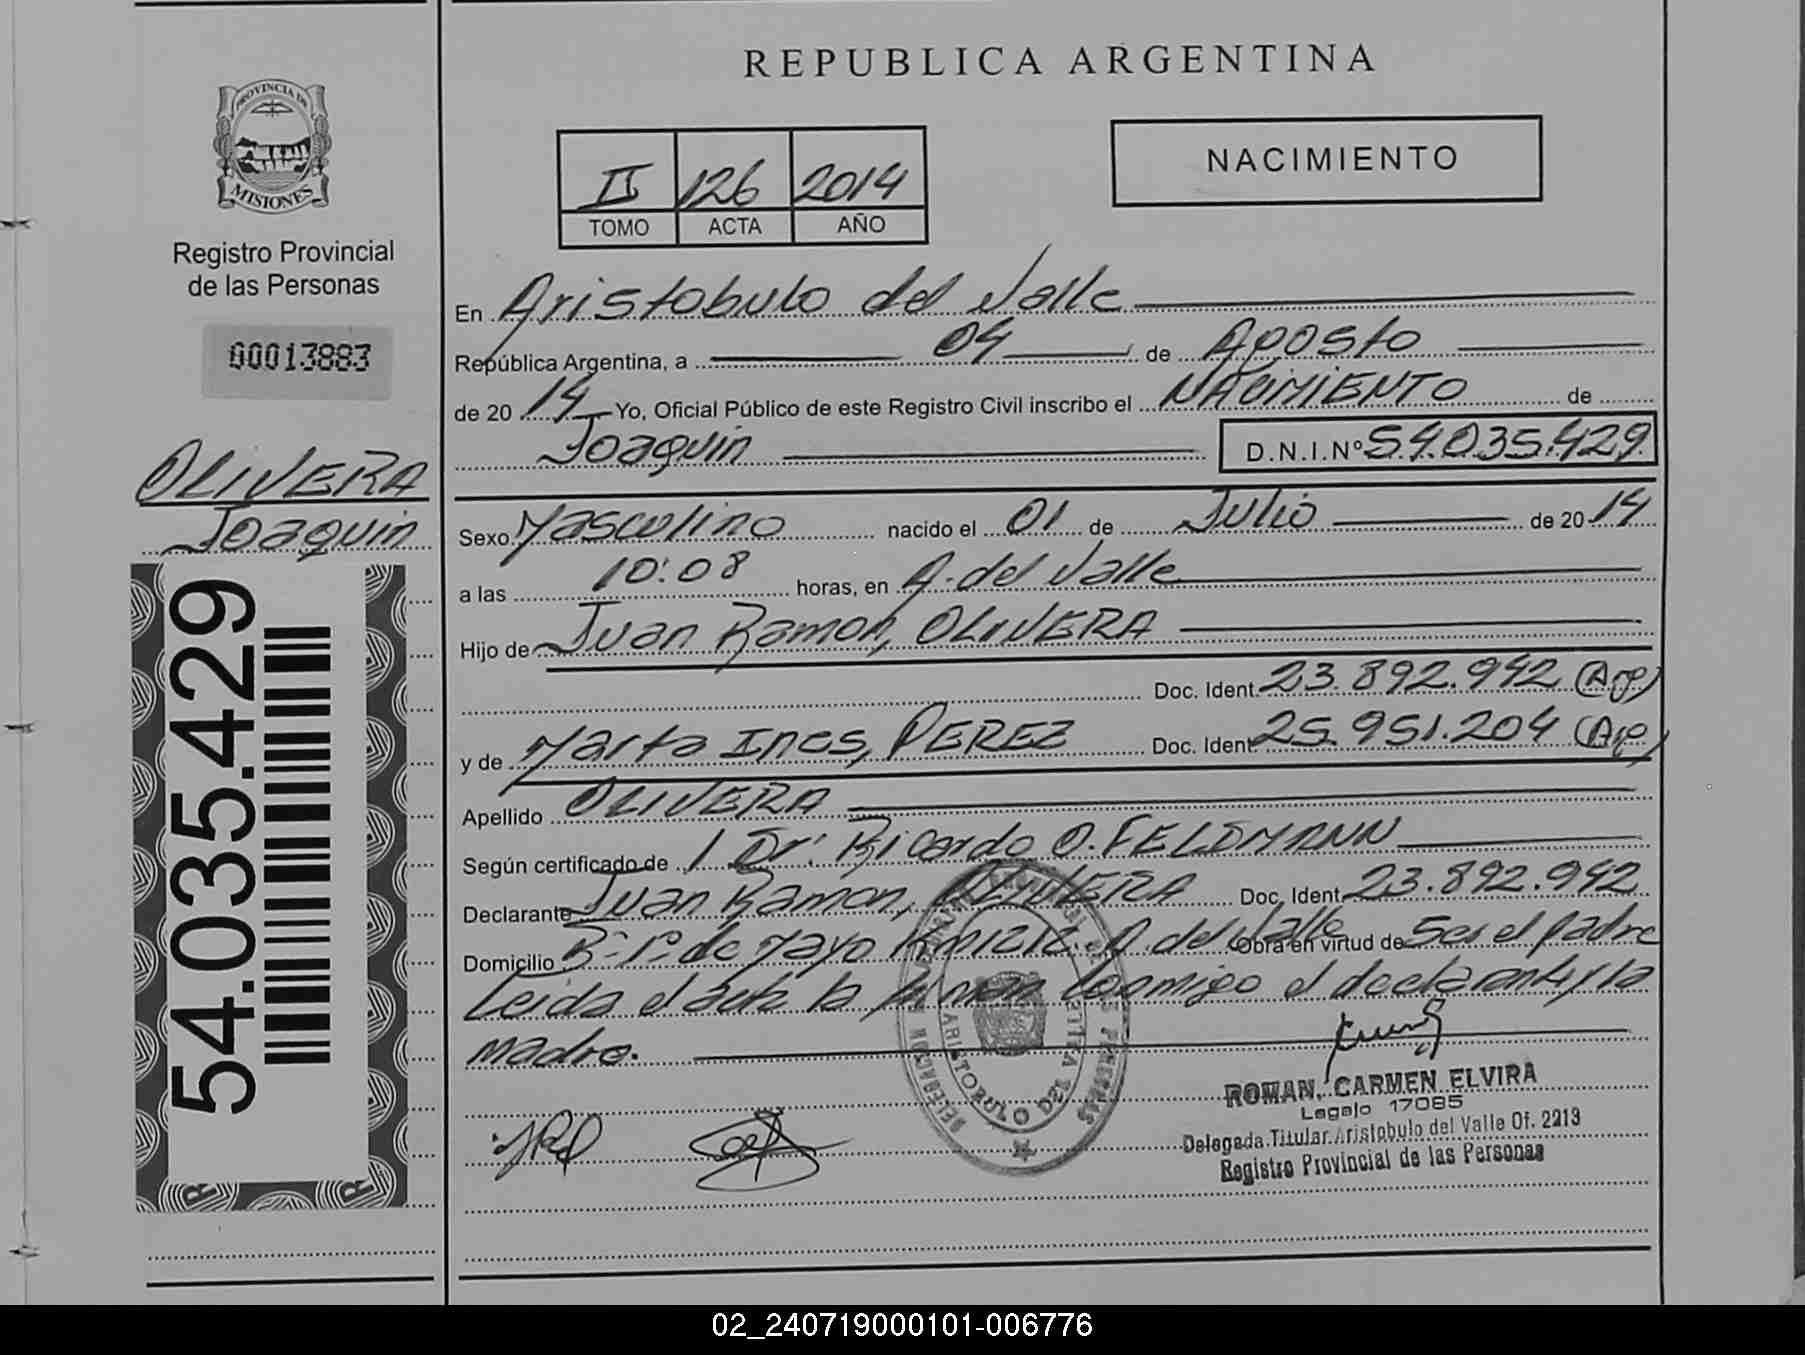 REPUBLICA ARGENTINA
PROVINCIA DE
MISIONES
Registro Provincial
de las Personas
00013883
OLIVERA
Joaquin
54.035.429
II 126 2014
TOMO ACTA AÑO
NACIMIENTO
En Aristobulo del Valle
República Argentina, a 04 de Agosto
de 2014 Yo, Oficial Público de este Registro Civil inscribo el NACIMIENTO de
Joaquin D.N.I.Nº 54.035.429
Sexo Masculino nacido el 01 de Julio de 2014
a las 10:08 horas, en A. del Valle
Hijo de Juan Ramon, OLIVERA
Doc. Ident. 23.892.942 (Arg)
y de Marta Ines, PEREZ Doc. Ident 25.951.204 (Arg)
Apellido OLIVERA
Según certificado de Dr. Ricardo O. FELDMANN
Declarante Juan Ramon, OLIVERA Doc. Ident. 23.892.942
Domicilio Bº 1º de Mayo Km 1212. A. del Valle Obra en virtud de Ser el padre
Leida el acta la firman conmigo el declarante y la
madre.
ARISTOBULO DEL VALLE
ROMAN, CARMEN ELVIRA
Legajo 17085
Delegada Titular Aristobulo del Valle Of. 2213
Registro Provincial de las Personas
02_240719000101-006776